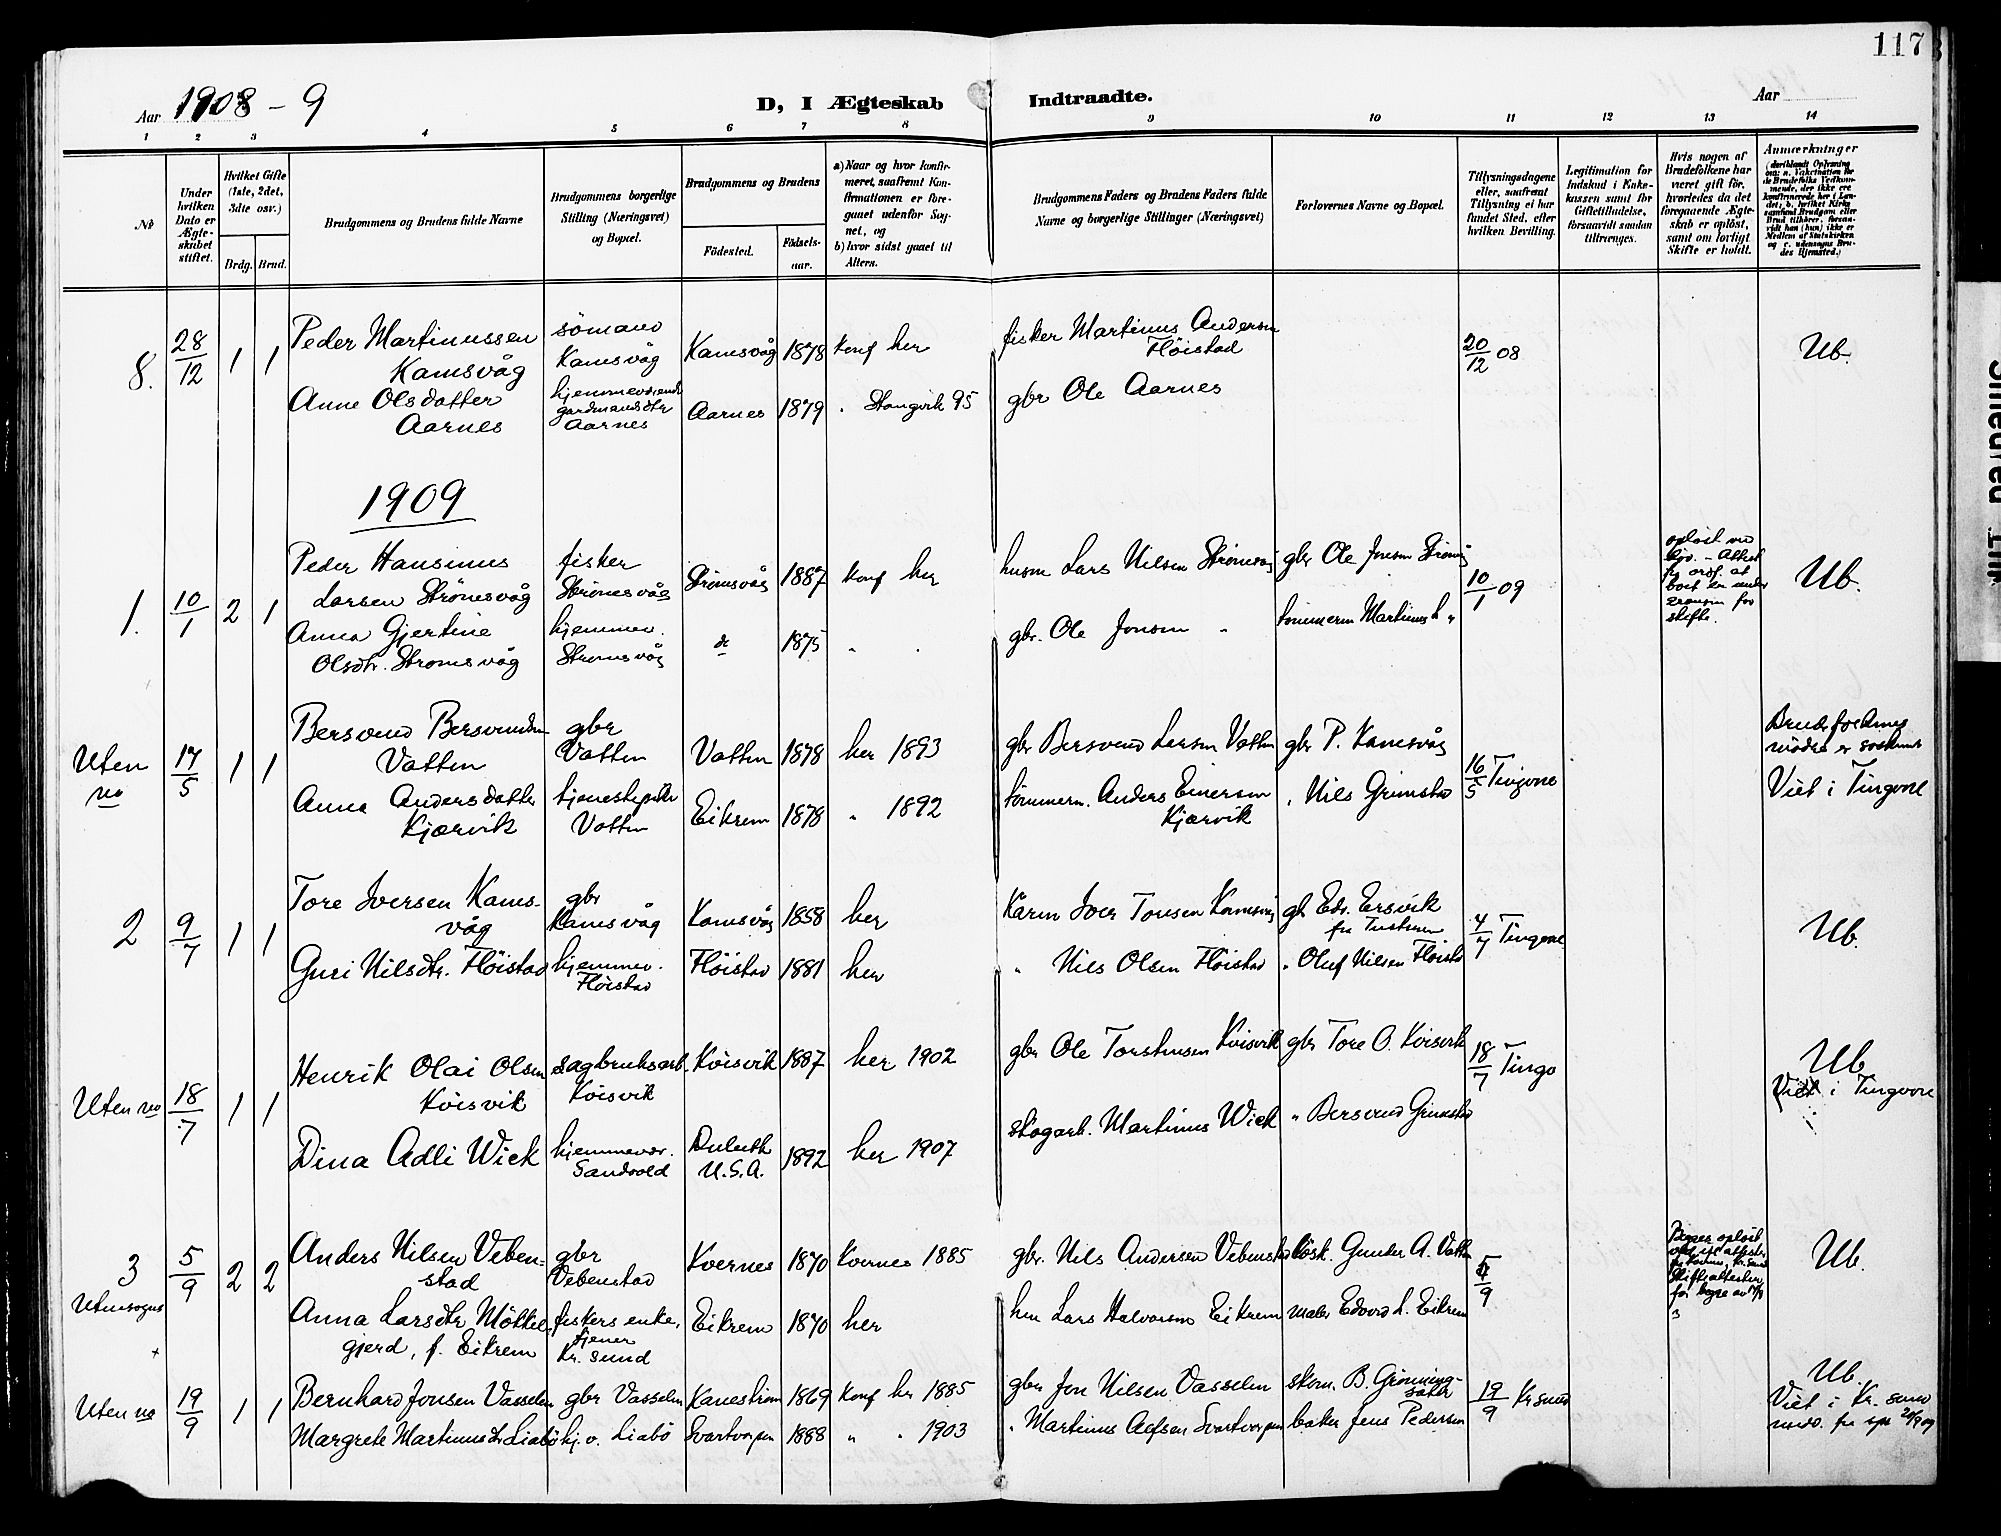 117
Aar 1908 - 9
D, I Ægteskab Indtraadte.
Aar
1 2 3 4 5 6 7 8 9 10 11 12 13 14
No
Under hvilken Dato er Ægteskabet stiftet.
Hvilket Gifte (1ste, 2det, 3die osv.)
Brdg. Brud.
Brudgommens og Brudens fulde Navne
Brudgommens borgerlige Stilling (Næringsvei) og Bopæl.
Brudgommens og Brudens
Födested. Födselsaar.
a) Naar og hvor konfirmeret, saafremt Konfirmationen er foregaaet udenfor Sognet, og
b) hvor sidst gaaet til Alters.
Brudgommens Faders og Brudens Faders fulde Navne og borgerlige Stillinger (Næringsvei)
Forlovernes Navne og Bopæl.
Tillysningsdagene eller, saafremt Tillysning ei har fundet Sted, efter hvilken Bevilling.
Legitimation for Indskud i Enkekassen samt for Giftetilladelse, forsaavidt saadan tiltrænges.
Hvis nogen af Brudefolkene har været gift för, hvorledes da det foregaaende Ægteskab er oplöst, samt om lovligt Skifte er holdt.
Anmærkninger
8. 28/12 1 1
Peder Martinussen Kamsvåg
sömand Kamsvåg
Kamsvåg 1878 konf her
fisker Martinus Andersen Flöistad
20/12 08
Ub.
Anne Olsdatter Aarnes
hjemmeværende gardmandsdtr Aarnes
Aarnes 1879 Stangvik 95
gbr Ole Aarnes
1909
1. 10/1 2 1
Peder Hansinus Larsen Strömsvåg
fisker Strömsvåg
Strömsvåg 1887 konf her
husm Lars Nilsen Strömsvåg
gbr Ole Jonsen Strömsvåg
10/1 09
Ub.
Anna Gjertine Olsdtr. Strömsvåg
hjemmev. Strömsvåg
do 1875 "
gbr. Ole Jonsen "
tömmerm Martinus L "
Uten no 17/5 1 1
Bersvend Bersvendsen Vatten
gbr Vatten
Vatten 1878 her 1893
gbr Bersvend Larsen Vatten
gbr P. Kamsvåg
16/5 Tingvoll
Viet i Tingvoll
Anna Andersdatter Kjærvik
tjenestepike Vatten
Eikrem 1878 " 1892
tömmerm. Anders Einersen Kjærvik
" Nils Grimstad
2 9/7 1 1
Tore Iversen Kamsvåg
gbr Kamsvåg
Kamsvåg 1858 her
Kårm Iver Toresen Kamsvåg
gbr Edv. Ersvik fra Tustern
4/7 Tingvoll
Ub.
Guri Nilsdtr. Flöistad
hjemmev. Flöistad
Flöistad 1881 her
" Nils Olsen Flöistad
" Oluf Nilsen Flöistad
Uten no 18/7 1 1
Henrik Olai Olsen Kvisvik
sagbruksarb. Kvisvik
Kvisvik 1887 her 1902
gbr Ole Torstensen Kvisvik
gbr Tore O. Kvisvik
18/7 Tingv
Ub
Viet i Tingvoll
Dina Adli Wick
hjemmevær. Sandvold
Duluth U.S.A. 1892 her 1907
skogarb. Martinus Wick
" Bersvend Grimstad
3 5/9 2 2
Utensogns
Anders Nilsen Vebenstad
gbr Vebenstad
Kvernes 1870 Kvernes 1885
gbr. Nils Andersen Vebenstad
Gunder A. Vatten
5/9
Ub.
Anna Larsdtr Möttelgjerd, f. Eikrem
fiskers enke, tjener Kr. sund
Eikrem 1870 her
hm Lars Halvorsen Eikrem
maler Edvard L. Eikrem
Uten no 19/9 1 1
Bernhard Jonsen Vasselen
gbr Vasselen
Kaneström 1869 konf her 1885
gbr Jon Nilsen Vasselen
skom. B. Grönningsæter
19/9 Kr sund
Ub.
Viet i Kr. sund
Margrete Martinusdtr Liabö
hj. v. Liabö
Svartvassen 1888 " 1903
" Martinus
baker Jens Pedersen